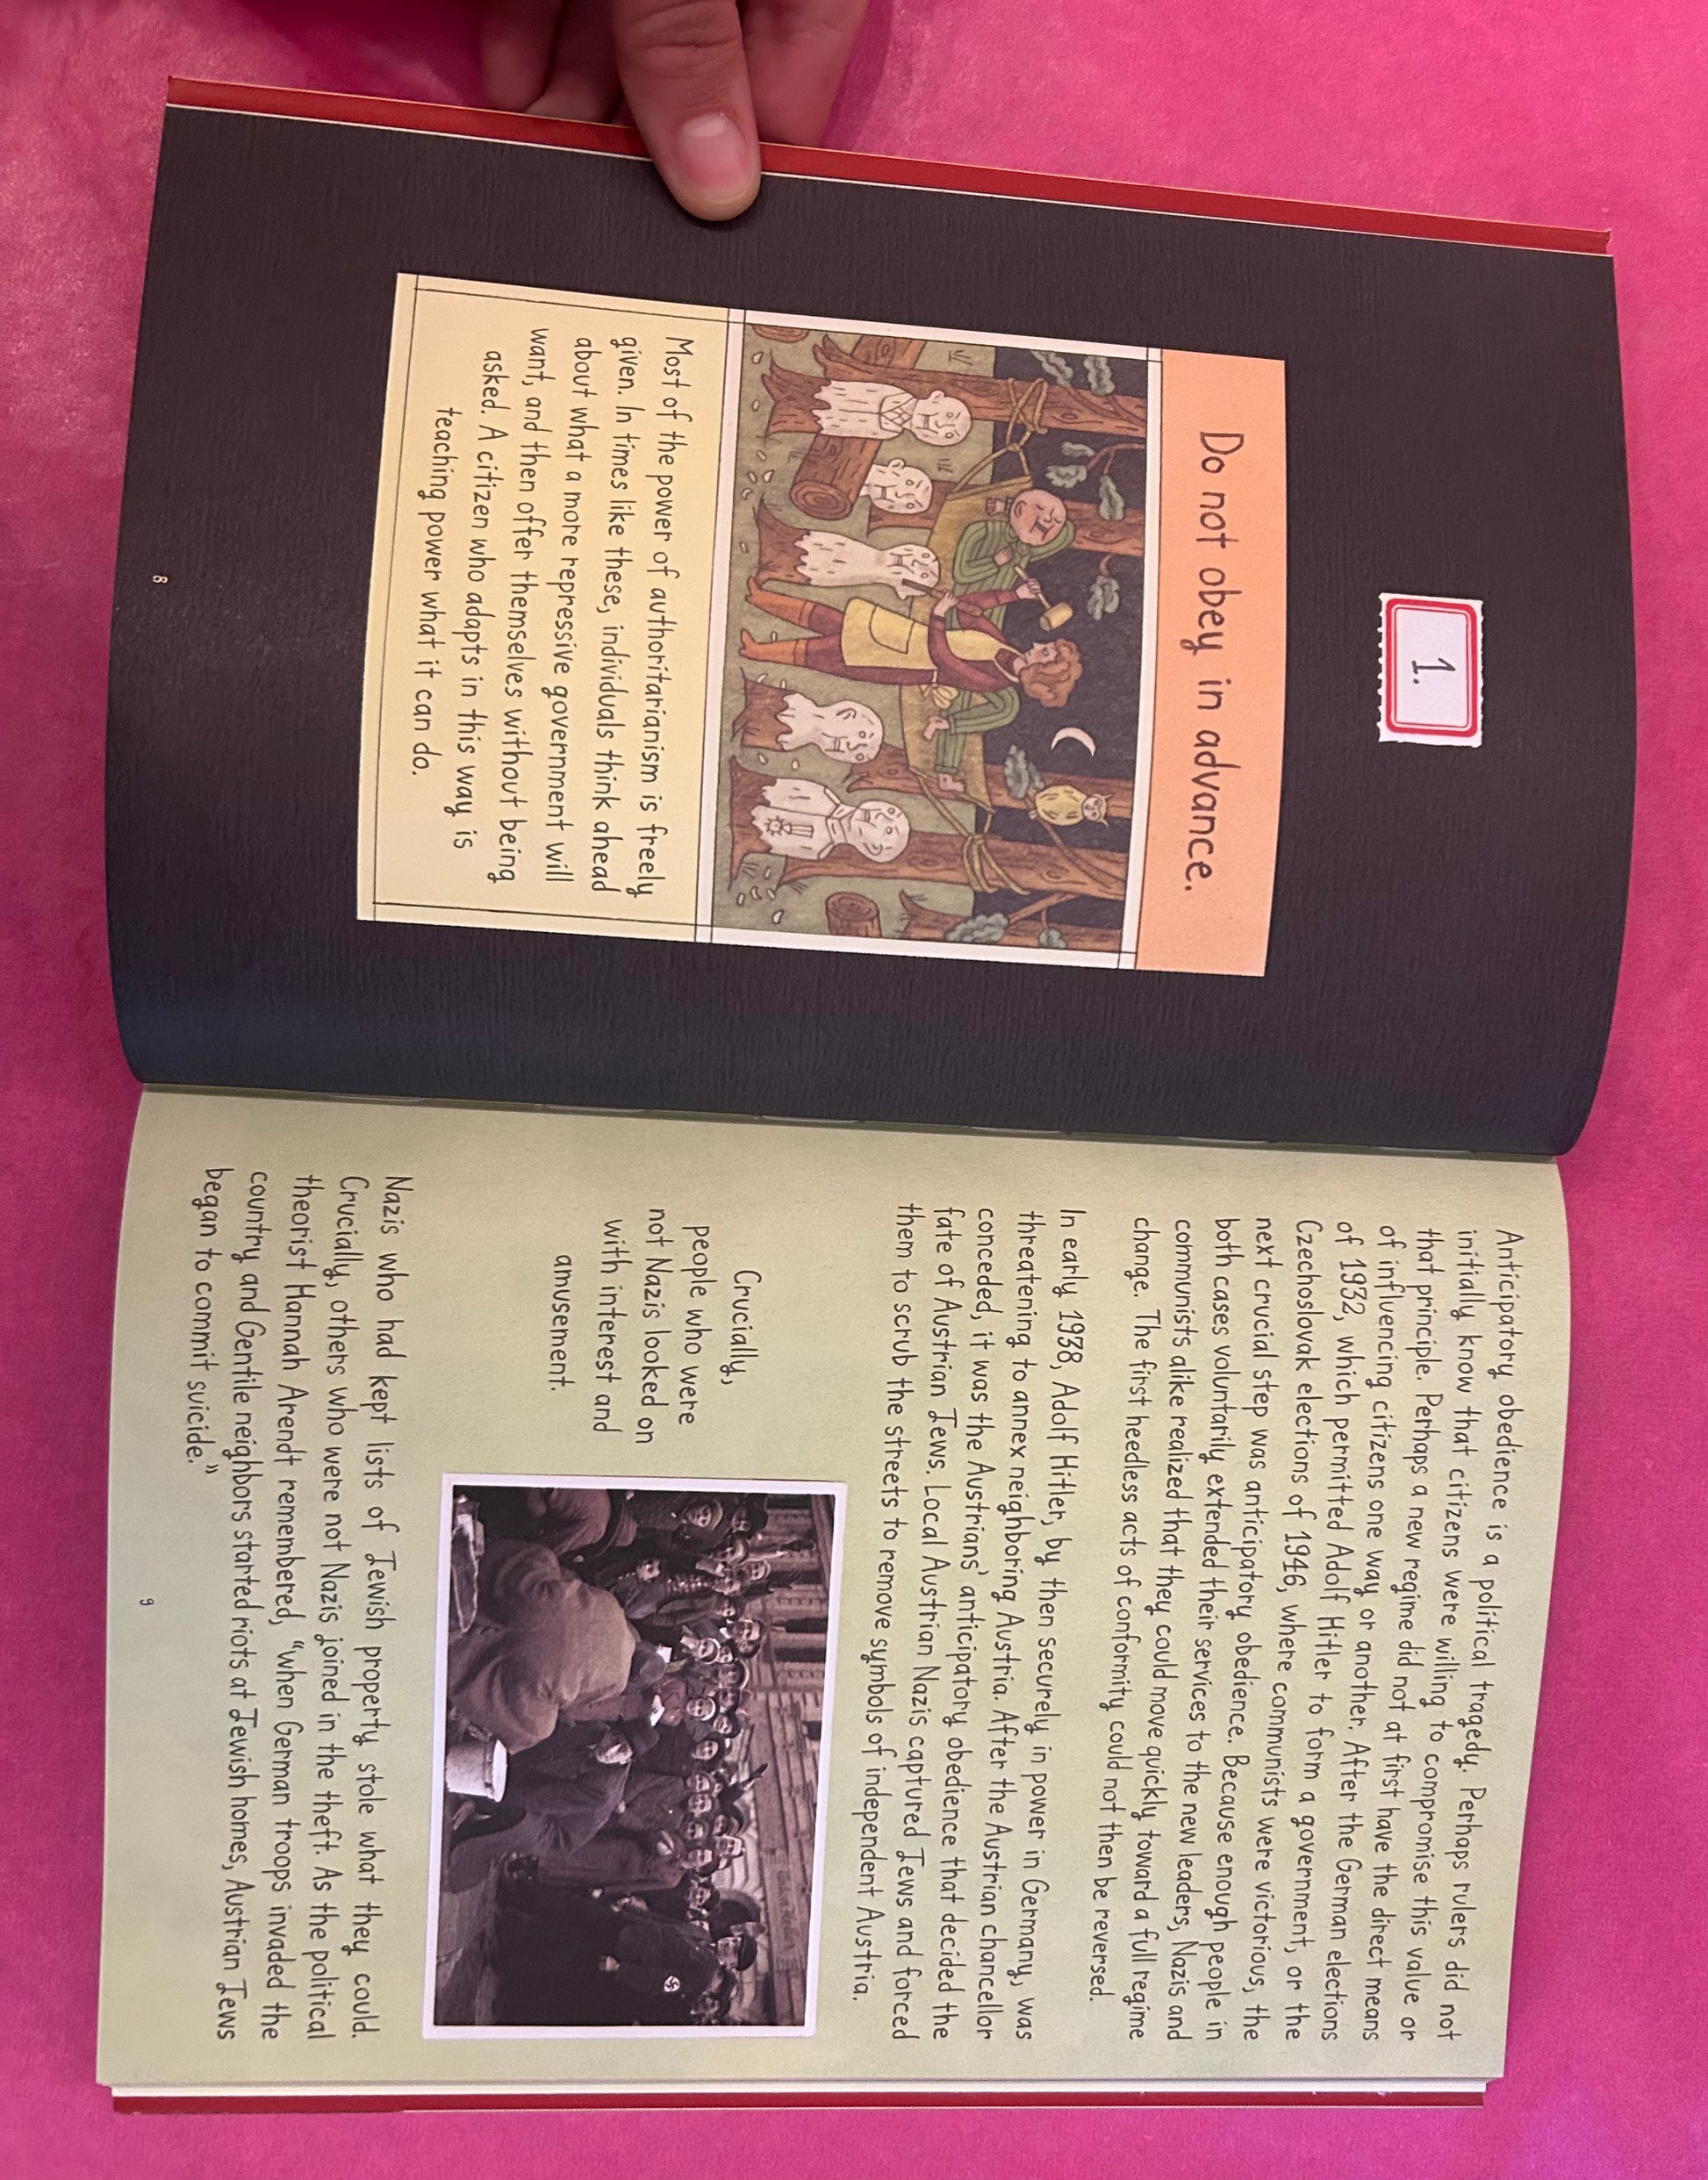 1.
Do not obey in advance.
Most of the power of authoritarianism is freely
given. In times like these, individuals think ahead
about what a more repressive government will
want, and then offer themselves without being
asked. A citizen who adapts in this way is
teaching power what it can do.
8
Anticipatory obedience is a political tragedy. Perhaps rulers did not
initially know that citizens were willing to compromise this value or
that principle. Perhaps a new regime did not at first have the direct means
of influencing citizens one way or another. After the German elections
of 1932, which permitted Adolf Hitler to form a government, or the
Czechoslovak elections of 1946, where communists were victorious, the
next crucial step was anticipatory obedience. Because enough people in
both cases voluntarily extended their services to the new leaders, Nazis and
communists alike realized that they could move quickly toward a full regime
change. The first heedless acts of conformity could not then be reversed.
In early 1938, Adolf Hitler, by then securely in power in Germany, was
threatening to annex neighboring Austria. After the Austrian chancellor
conceded, it was the Austrians' anticipatory obedience that decided the
fate of Austrian Jews. Local Austrian Nazis captured Jews and forced
them to scrub the streets to remove symbols of independent Austria.
Crucially,
people who were
not Nazis looked on
with interest and
amusement.
Nazis who had kept lists of Jewish property stole what they could.
Crucially, others who were not Nazis joined in the theft. As the political
theorist Hannah Arendt remembered, “when German troops invaded the
country and Gentile neighbors started riots at Jewish homes, Austrian Jews
began to commit suicide.”
9